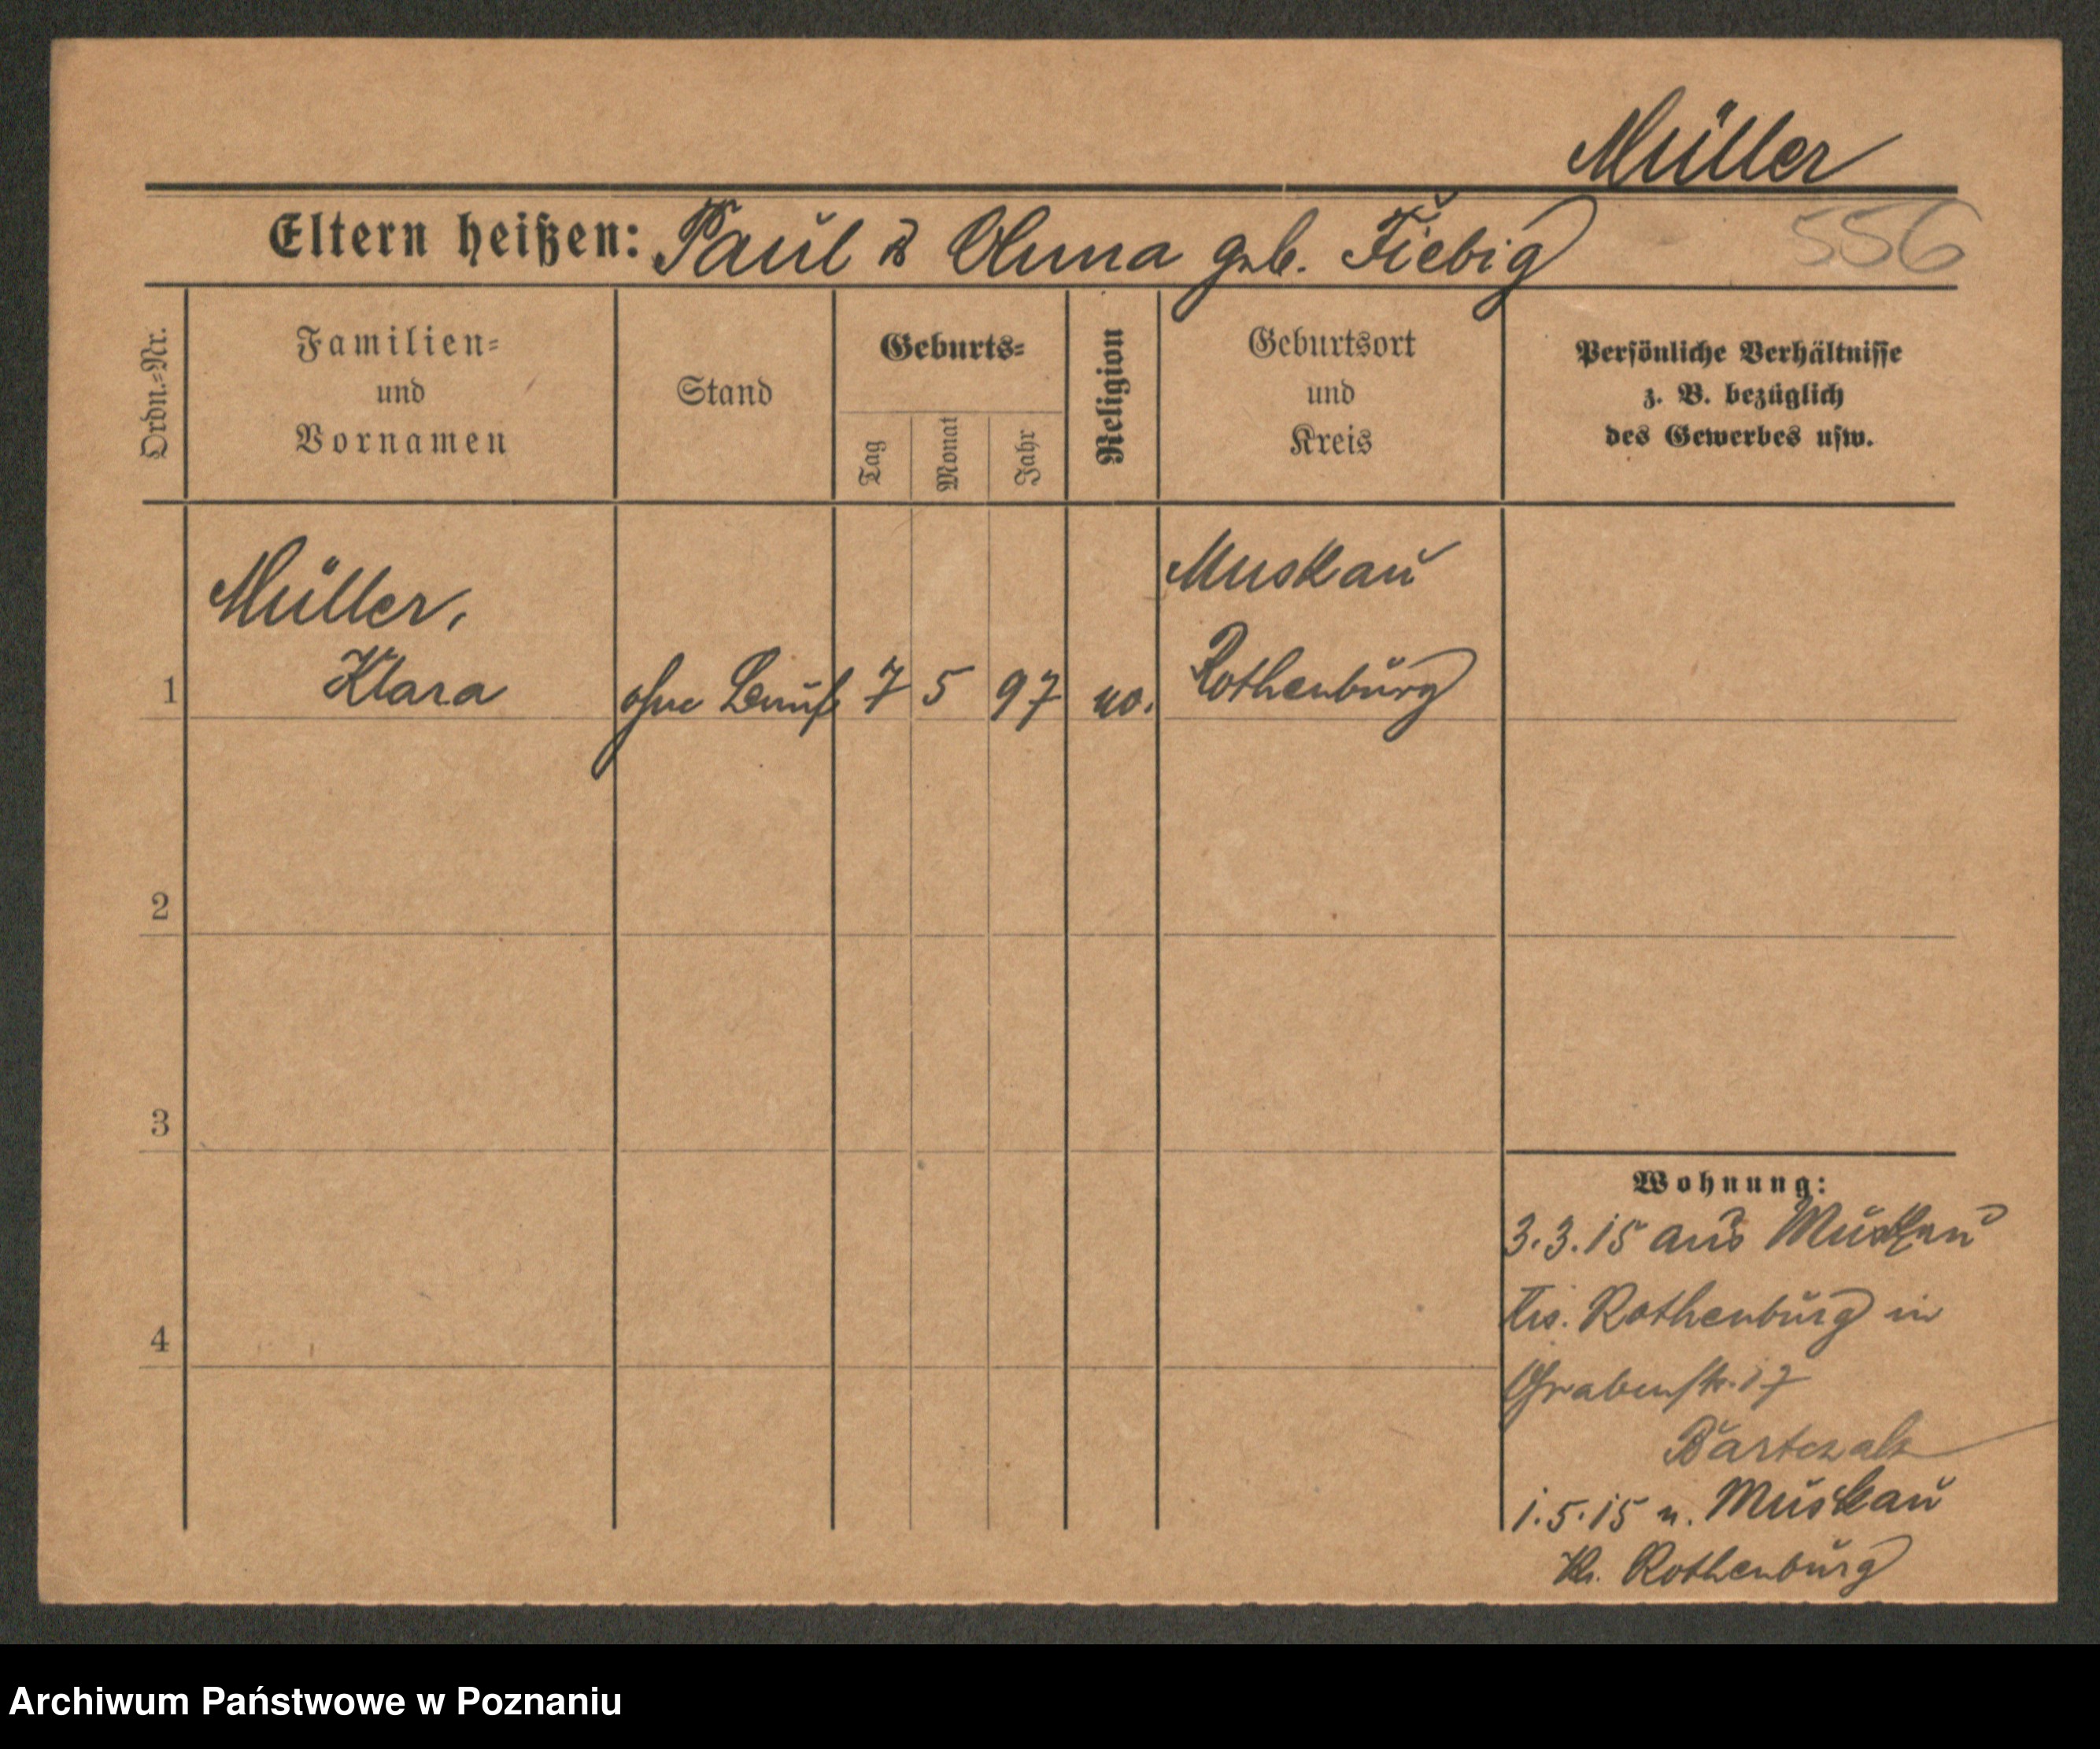 Müller
Eltern heißen: Paul & Anna geb. Fiebig
556
Ordn.=Nr.
Familien=
und
Vornamen
Stand
Geburts=
Tag
Monat
Jahr
Religion
Geburtsort
und
Kreis
Persönliche Verhältnisse
z. B. bezüglich
des Gewerbes usw.
Müller,
Klara
1
ohne Beruf
7
5
97
Muskau
Rothenburg
2
3
4
Wohnung:
3.3.15 aus Muskau
Krs. Rothenburg in
Grabenstr. 17
Bartczak
1.5.15 n. Muskau
Kr. Rothenburg
Archiwum Państwowe w Poznaniu